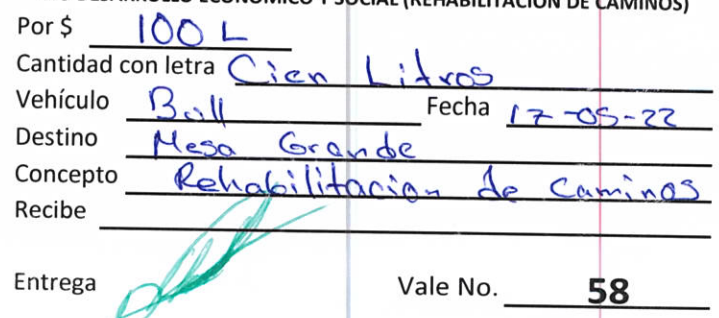 DESARROLLO ECONOMICO Y SOCIAL (REHABILITACION DE CAMINOS)
Por $ 100 L
Cantidad con letra Cien Litros
Vehículo Boll Fecha 17-05-22
Destino Mesa Grande
Concepto Rehabilitacion de Caminos
Recibe
Entrega Vale No. 58